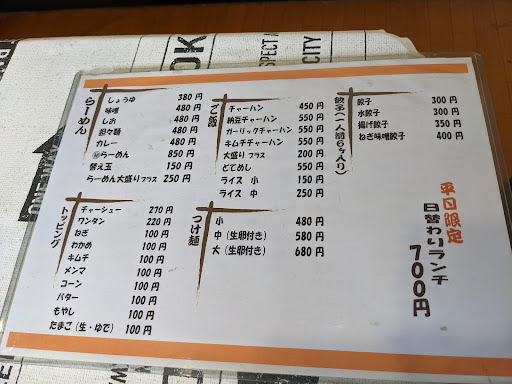 らーめん
しょうゆ 380 円
味噌 480 円
しお 480 円
担々麺 480 円
カレー 480 円
らーめん 850 円
替え玉 150 円
らーめん大盛りプラス 250 円
ご飯
チャーハン 450 円
納豆チャーハン 550 円
ガーリックチャーハン 550 円
キムチチャーハン 550 円
大盛りプラス 200 円
どてめし 550 円
ライス 小 150 円
ライス 中 250 円
餃子(一人前6ヶ入り)
餃子 300 円
水餃子 300 円
揚げ餃子 350 円
ねぎ味噌餃子 400 円
トッピング
チャーシュー 270 円
ワンタン 220 円
ねぎ 100 円
わかめ 100 円
キムチ 100 円
メンマ 100 円
コーン 100 円
バター 100 円
もやし 100 円
たまご(生・ゆで) 100 円
つけ麺
小 480 円
中(生卵付き) 580 円
大(生卵付き) 680 円
平日限定
日替わりランチ
700円
OK
SPECT A
CITY